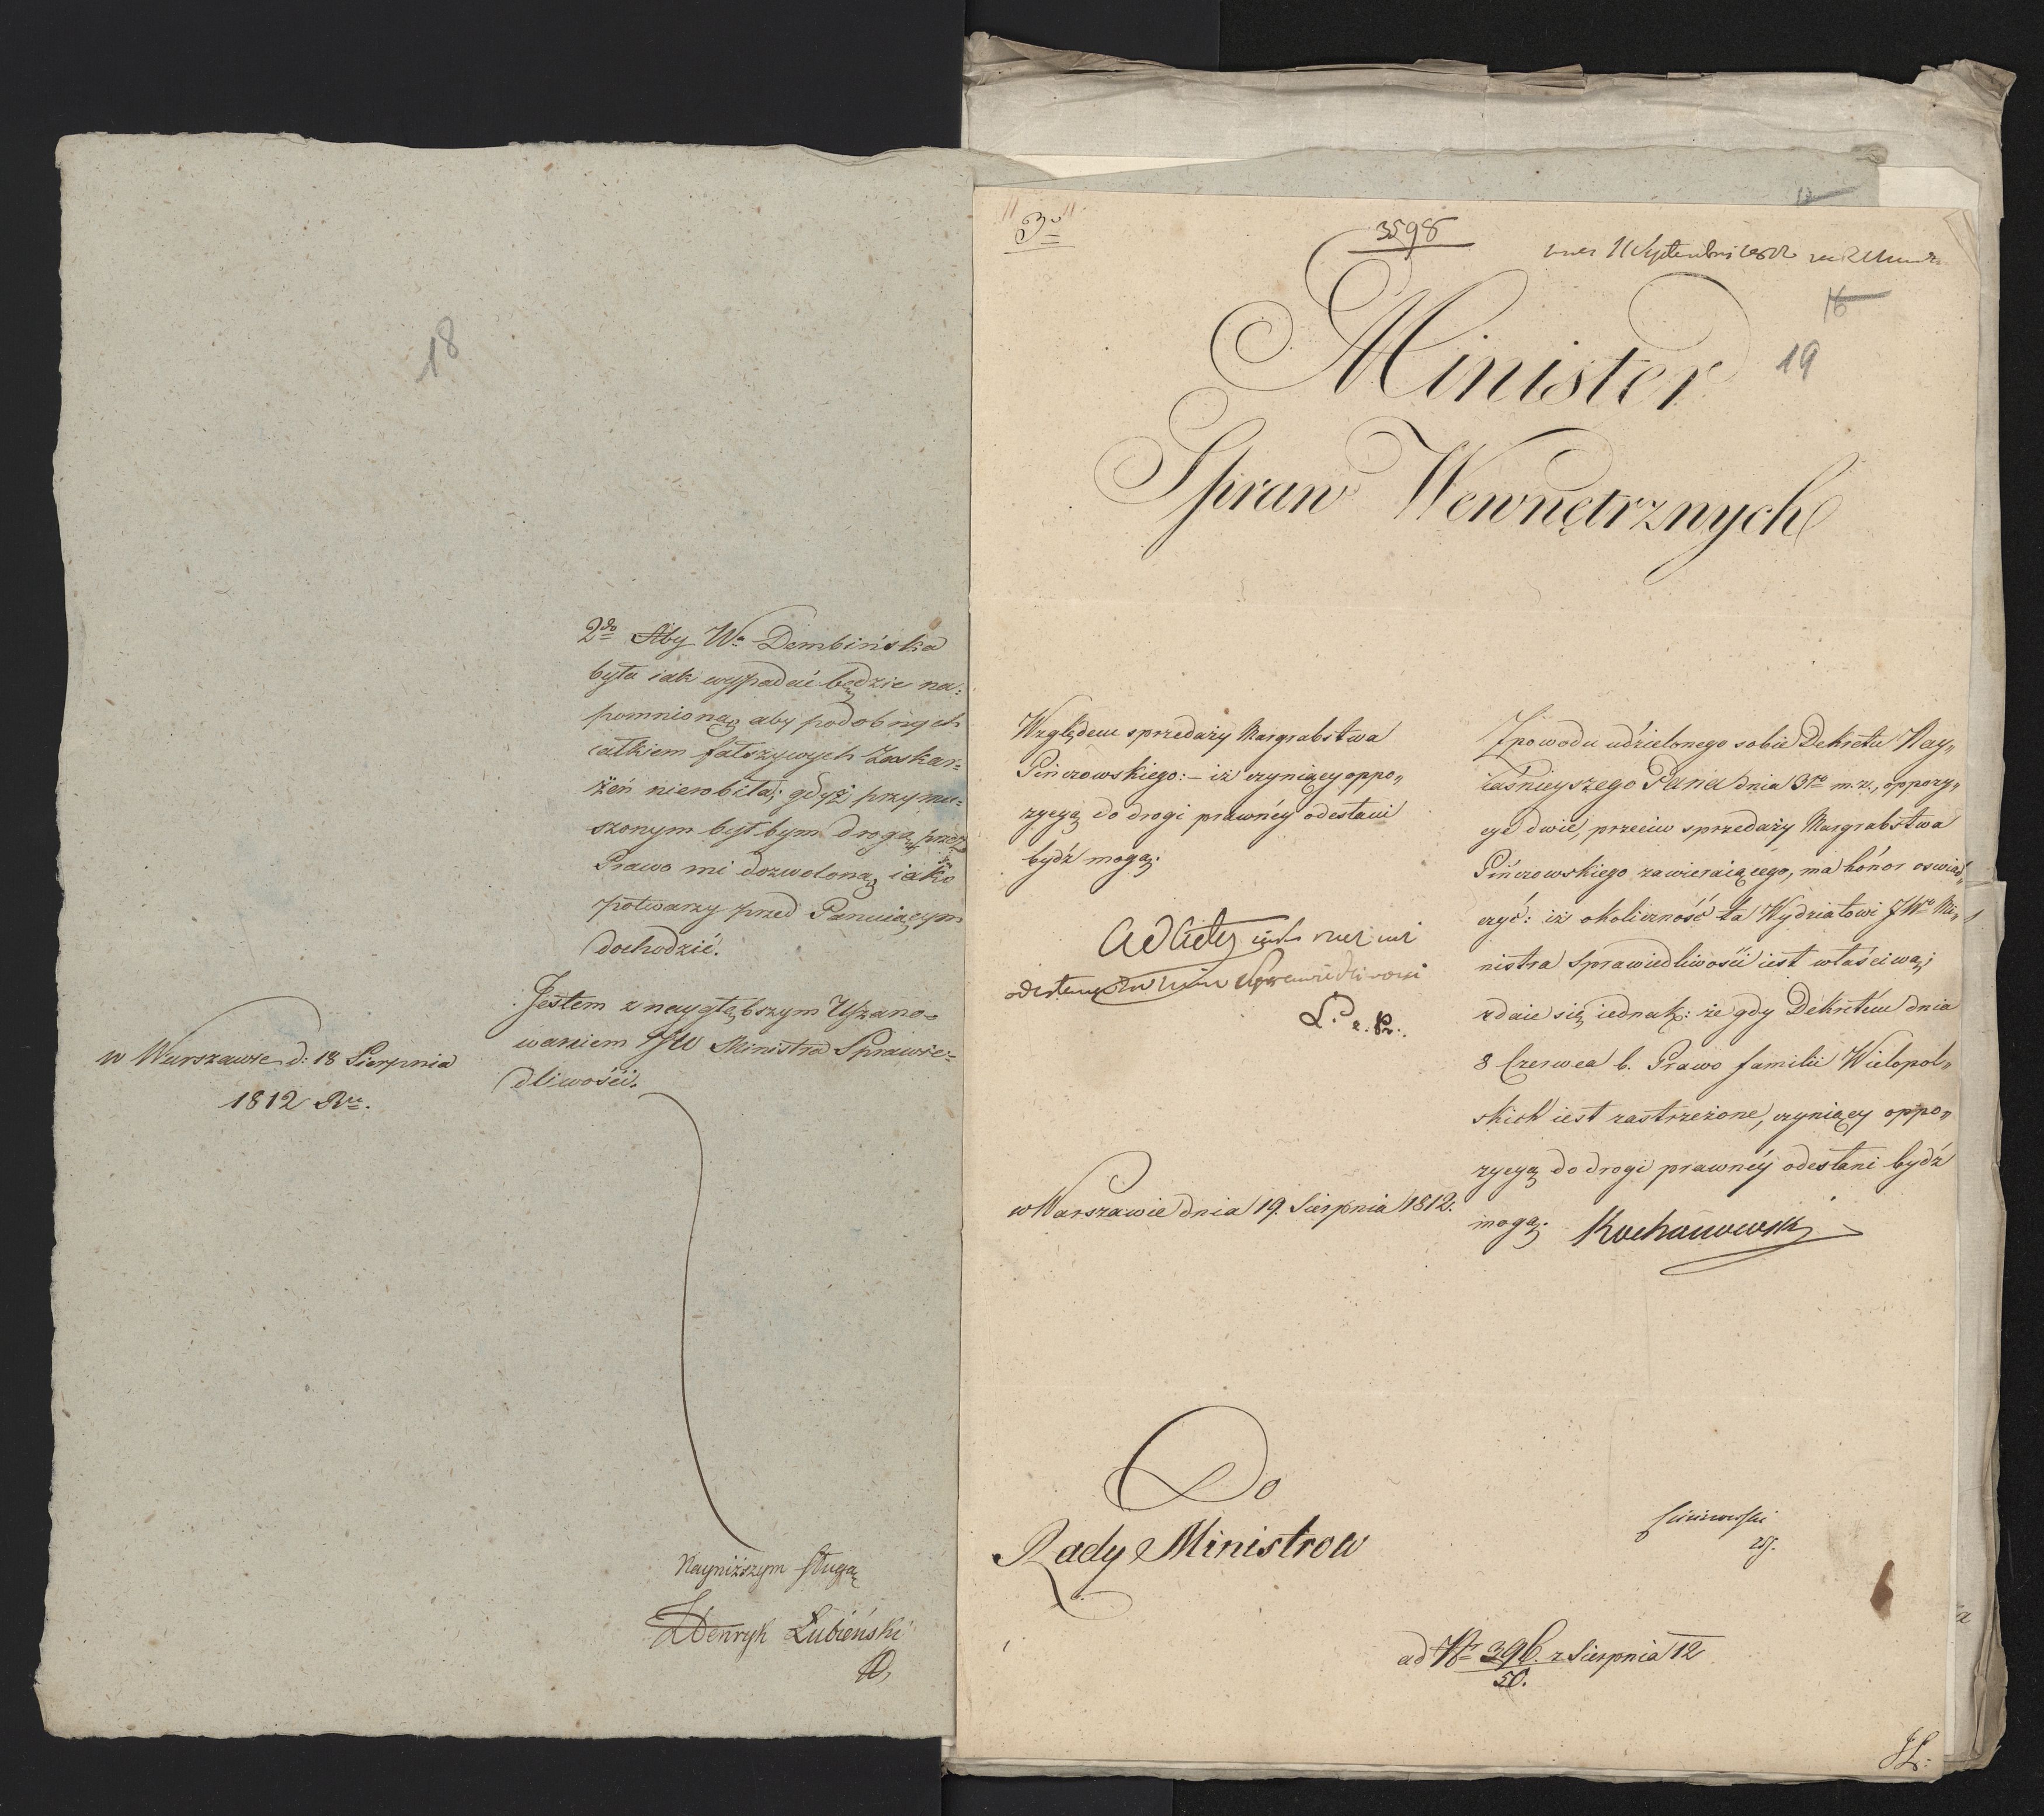 18
2do Aby Wa Dembińska
była iak wypadać będzie na:
pomnioną, aby podobnych
całkiem fałszywych Zaskar:
żeń nierobiła; gdyż przymu:
szonym byłbym drogą, przez
Prawo mi dozwoloną, iako
potwarzy przed Panuiącym
dochodzić.
Jestem z naygłębszym Uszano-
waniem JW Ministra Sprawie-
dliwości.
w Warszawie d: 18 Sierpnia
1812 Ru.
Nayniższym sługą
Henryk Łubieński
3o
3598
11 Septembris
16
19
Minister
Spraw Wewnętrznych
Względem sprzedaży Margrabstwa
Pińczowskiego:– iż czyniący oppo„
zycyą do drogi prawnéy odesłani
bydź mogą.
Ad Acta
Sprawiedliwości
Z powodu udzielonego sobie Dekretu Nay„
iaśnieyszego Pana dnia 3go m. z., oppozy„
cye dwie, przeciw sprzedaży Margrabstwa
Pińczowskiego zawieraiącego, ma honor oswiad„
czyć: iż okoliczność ta Wydziałowi JWo Mi„
nistra Sprawiedliwości iest właściwą;
zdaie się iednak: że gdy Dekretem dnia
8 Czerwca b. Prawo familii Wielopol„
skich iest zastrzeżone, czyniący oppo„
zycyą do drogi prawnéy odesłani bydź
mogą.
Kochanowski
w Warszawie dnia 19. Sierpnia 1812.
Do
Rady Ministrow
ad Nr 396. z Sierpnia 12
50.